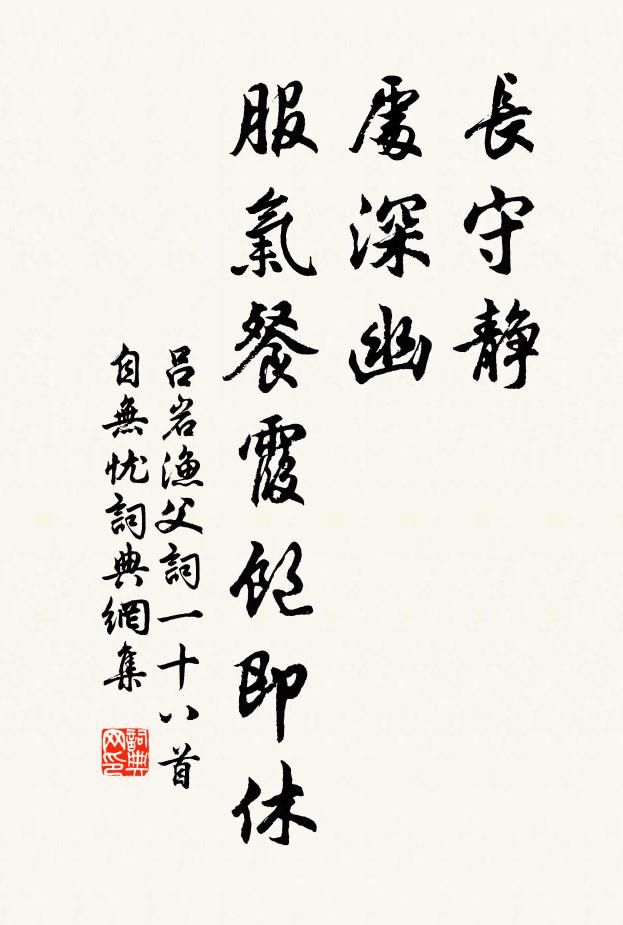 長守静
處深幽
服氣餐霞飽即休
吕岩漁父詞一十八首
自無忧詞典網集
詞典
网印